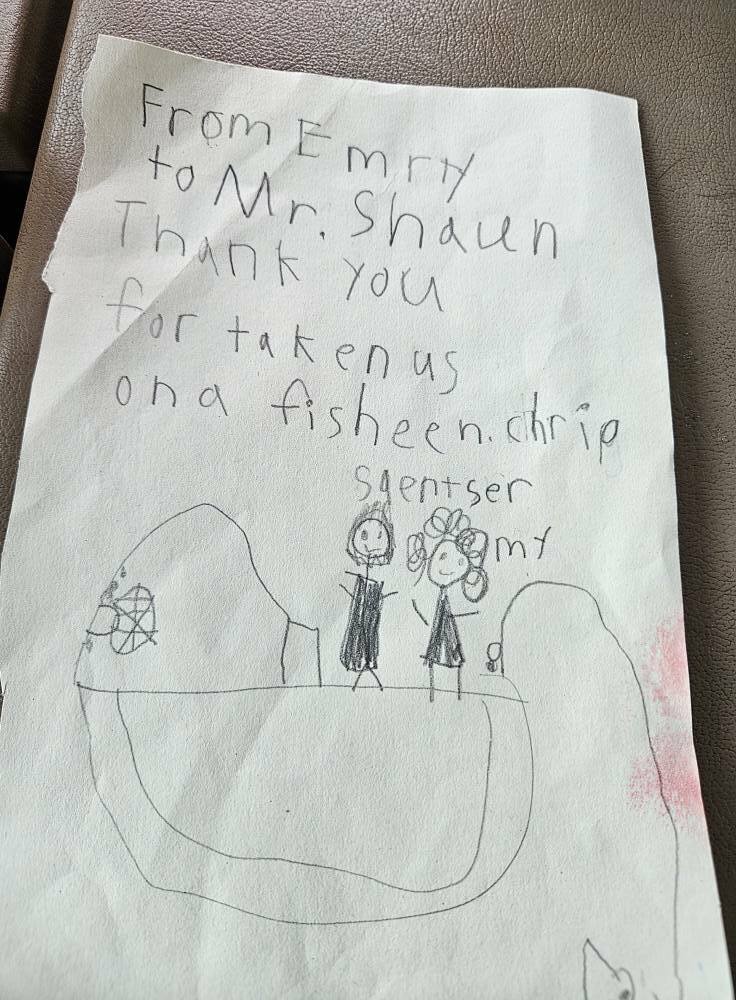 From Emry
to Mr. Shaun
Thank you
for taken us
on a fisheen. chrip
Spentser
my